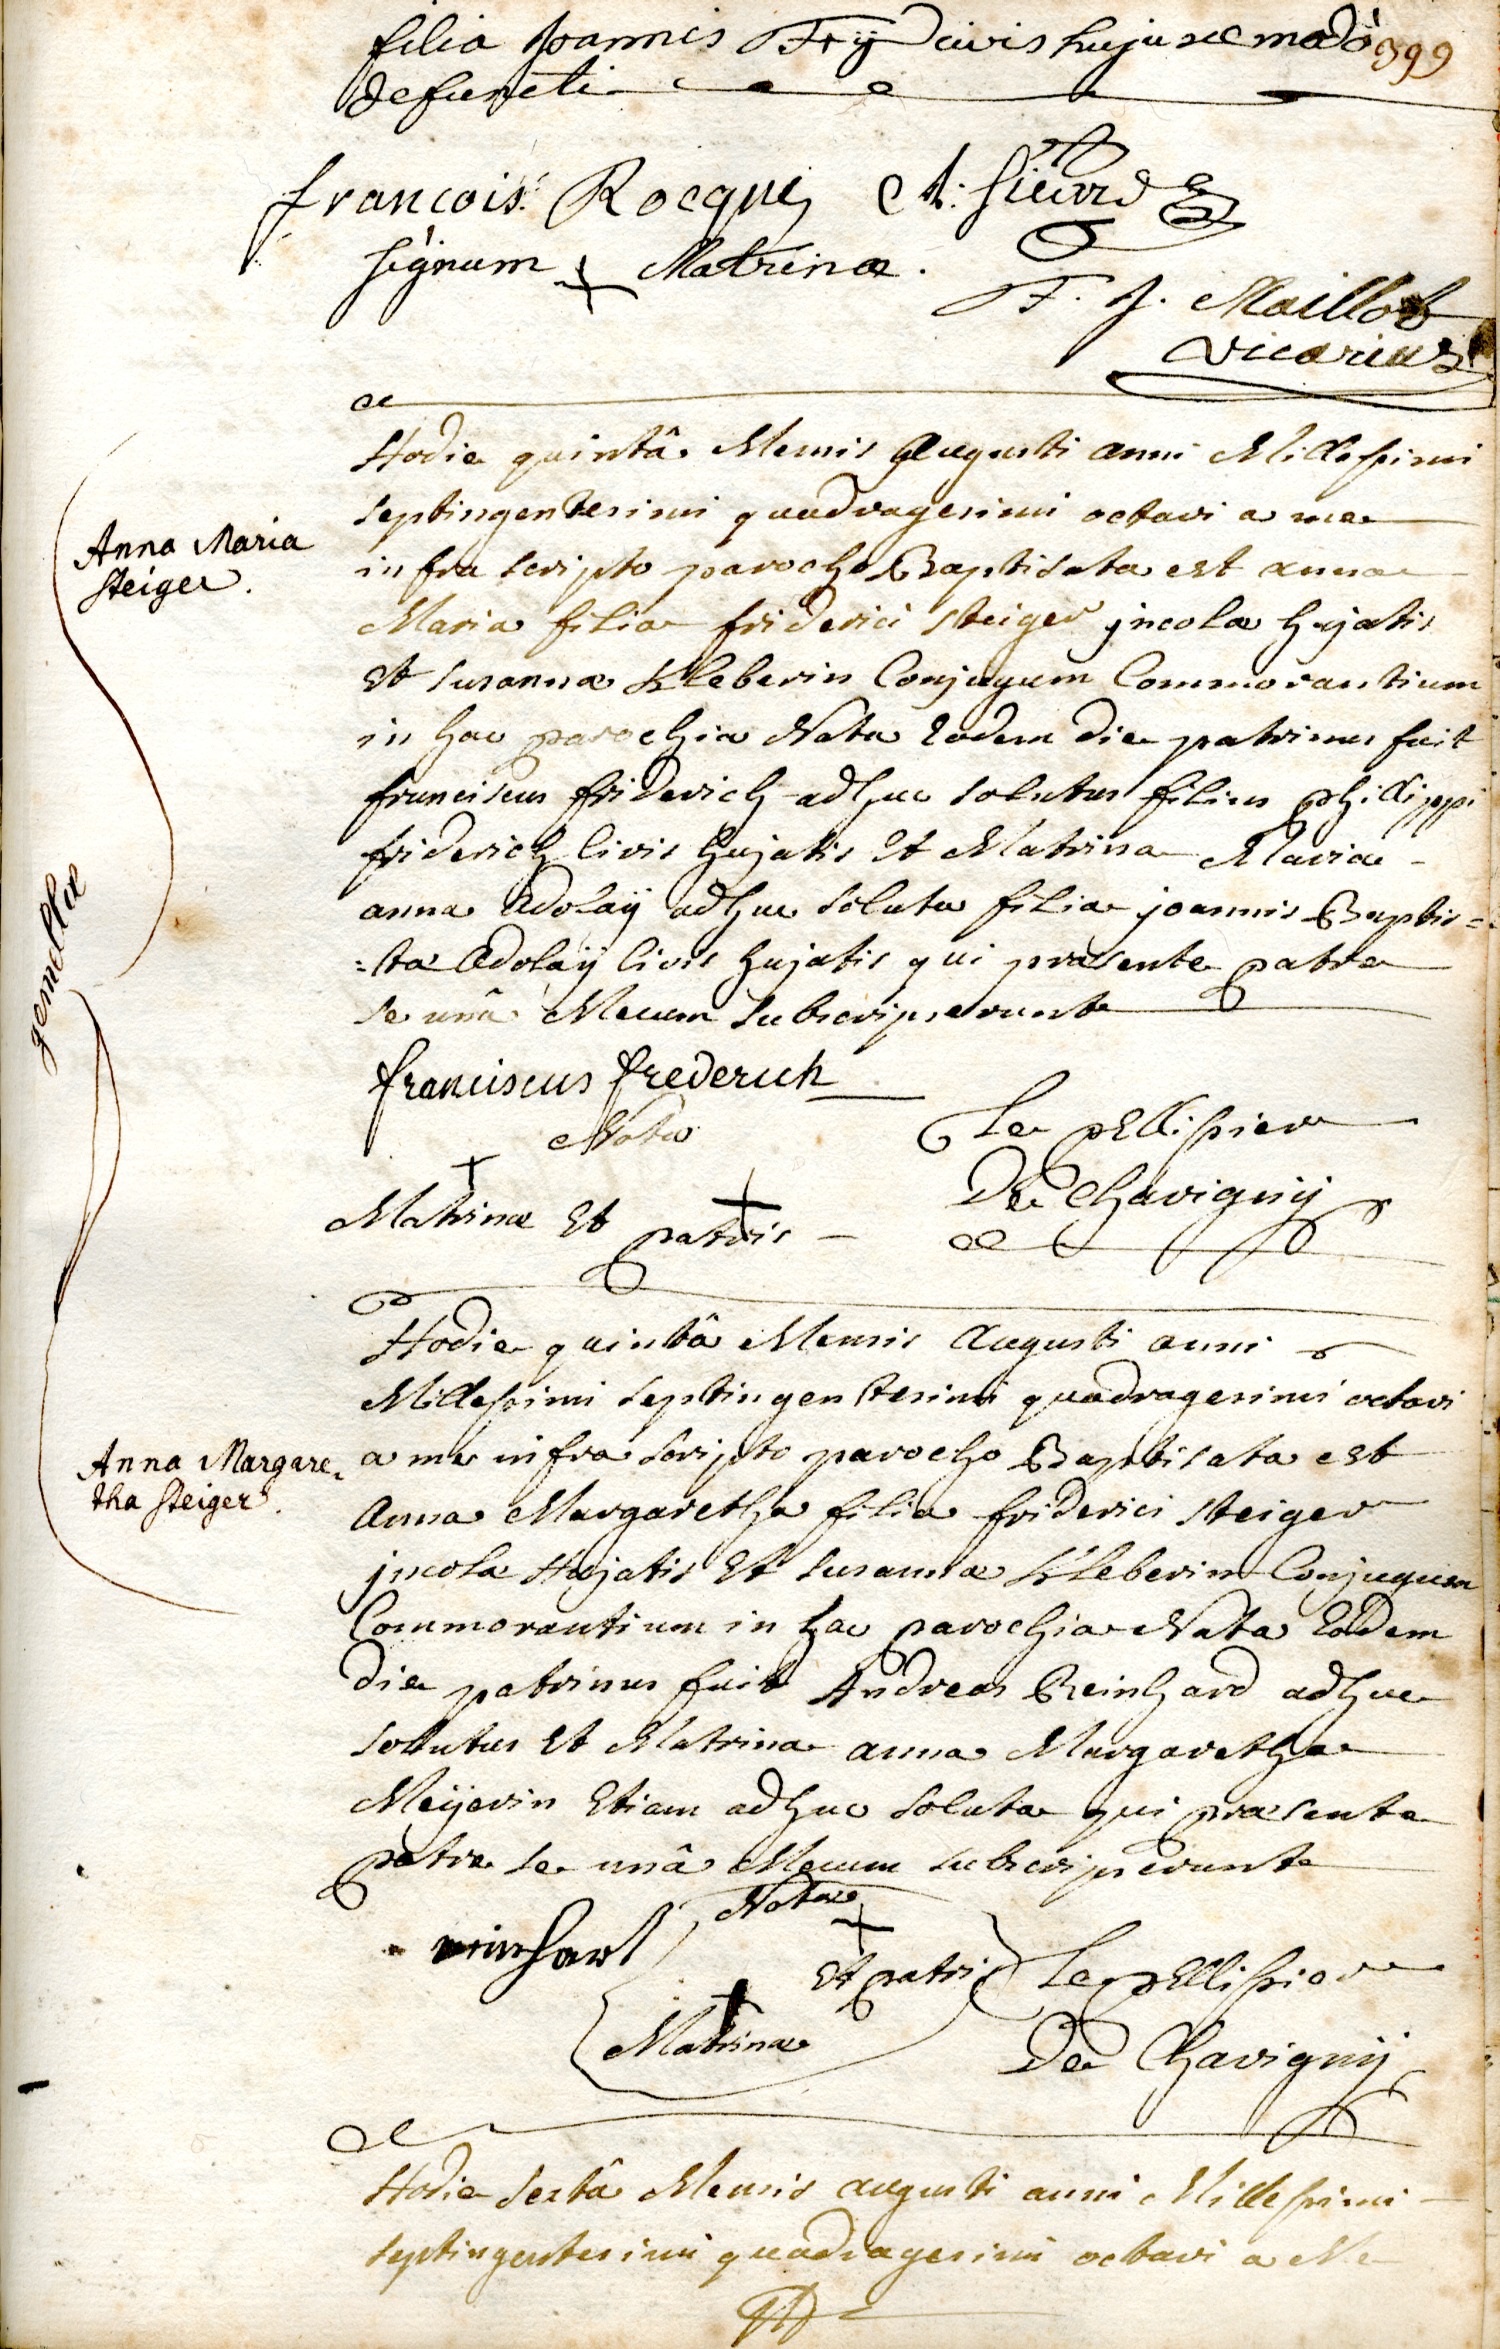 filia Joannis Frÿ civis hujusce modò 399
defuncti
francois Rocque A: Sicard
signum + Matrinæ.
F. J. Maillot
vicarius
Hodie quintâ Mensis Augusti anni Millesimi
septingentesimi quadragesimi octavi a me
Anna Maria
Steiger.
infra scripto parocho Baptisata est anna
Maria filia friderici steiger jncolæ hujatis
Et susannæ Kleberin Conjugum Commorantium
in hac parochia Nata Eodem die patrinus fuit
franciscus friderich adhuc solutus filius phillippi
friderich Civis hujatis Et Matrina Maria
gemellæ
anna Adolaÿ adhuc soluta filia joannis Baptis=
=ta Adolaÿ Civis hujatis qui præsente patre
se unâ Mecum subscripserunt
franciscus frederich
Nota
+
Matrinæ Et + patris
Le pellissier
De Chavignÿ
Hodie quintâ Mensis Augusti anni
Millesimi septingentesimi quadragesimi octavi
Anna Margare-
tha Steiger.
a me infra scripto parocho Baptisata est
Anna Margaretha filia friderici steiger
jncolæ Hujatis Et susannæ Kleberin Conjugum
Commorantium in hac parochia Nata Eodem
die patrinus fuit Andreas Reinhard adhuc
solutus Et Matrina anna Margaretha
Meÿerin Etiam adhuc soluta qui præsente
patre se unâ Mecum subscripserunt
Notæ
reinhart
+
Et patris
+
Matrinæ
Le pellissier
De Chavignÿ
Hodie sextâ Mensis augusti anni Millesimi
septingentesimi quadragesimi octavi a Me